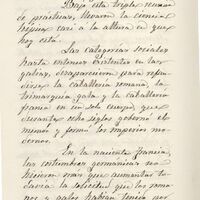 Bajo esta triple reunion
de prácticas, llevaron la ciencia
hípica casi á la altura en que
hoy está.
Las categorias sociales
hasta entonces existentes en las
galias, desaparecieron para
la caballeria romana, la
trimarquia gala y la caballeria
franca en un solo cuerpo, que
durante ocho siglos gobernó el
mundo y formó los imperios mo-
dernos.
En la naciente francia,
las costumbres germanicas no
hicieron mas que aumentar to-
davia la solicitud que los roma-
nos y galos habian tenido por